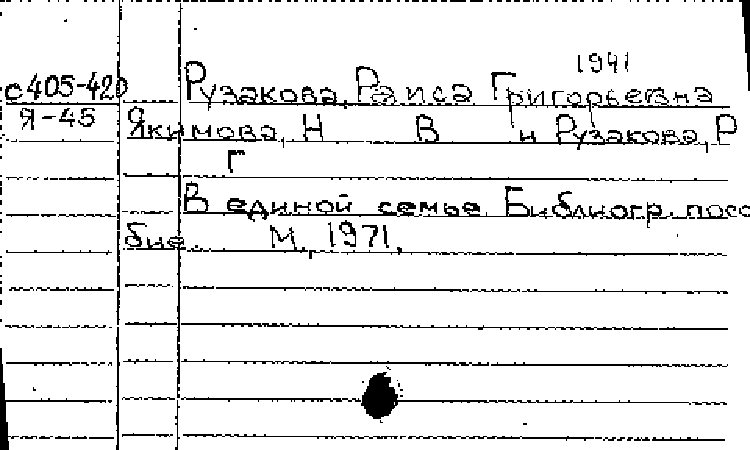 1941
с405-420 Рузакова, Раиса Григорьевна
Я-45 Якимова, Н В и Рузакова, Р
Г
В единой семье. Библиогр. посо
бие. М., 1971.